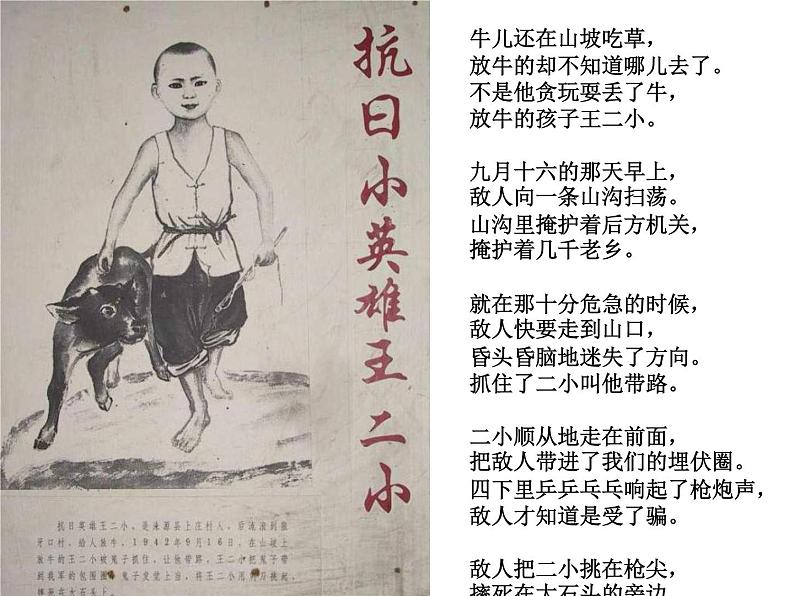 抗日小英雄王二小
抗日英雄王二小。是涞源县上庄村人。后流浪到狼
牙口村。给人放牛。1942年9月16日。在山坡上
放牛的王二小被鬼子抓住。让他带路。王二小把鬼子带
到我军的包围圈。鬼子发觉上当。将王二小用刺刀挑起。
摔死在大石头上。
牛儿还在山坡吃草，
放牛的却不知道哪儿去了。
不是他贪玩耍丢了牛，
放牛的孩子王二小。
九月十六的那天早上，
敌人向一条山沟扫荡。
山沟里掩护着后方机关，
掩护着几千老乡。
就在那十分危急的时候，
敌人快要走到山口，
昏头昏脑地迷失了方向。
抓住了二小叫他带路。
二小顺从地走在前面，
把敌人带进了我们的埋伏圈。
四下里乒乒乓乓响起了枪炮声，
敌人才知道是受了骗。
敌人把二小挑在枪尖，
摔死在大石头的旁边